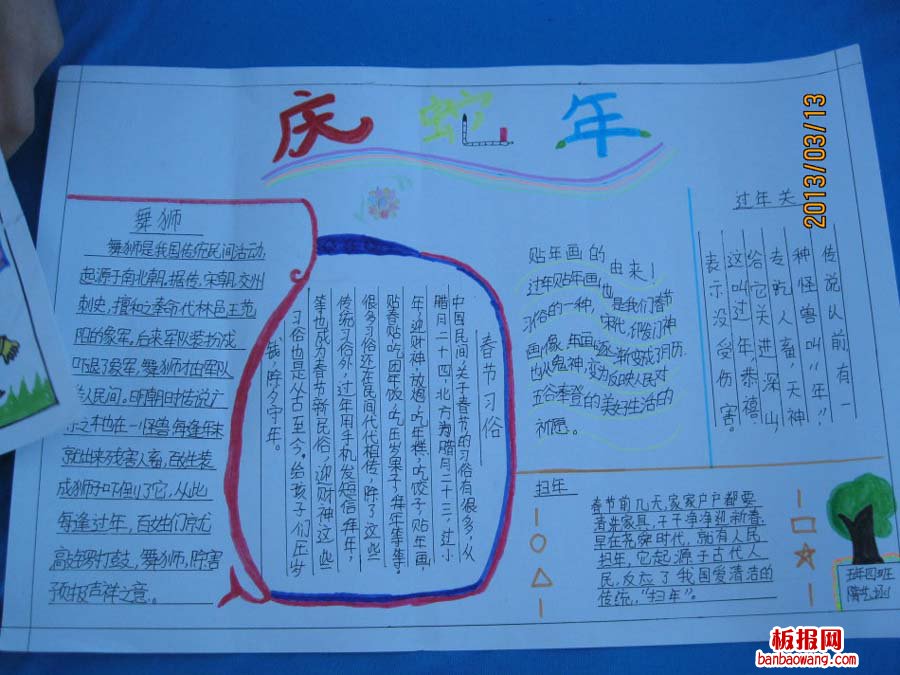 庆蛇年
2013/03/13
舞狮
舞狮是我国传统民间活动,
起源于南北朝。据传,宋朝,交州
刺史,擅和之奉命代林邑王范
阳的象军。后来军队装扮成
吓退了象军。舞狮才由军队
民间。明朝旧时传说广
东之本也在一怪兽每逢年末
就出来残害人畜,百姓装
成狮子吓倒了它,从此
每逢过年,百姓们就
高敲锣打鼓,舞狮,除害
预报声祥之意。
春节习俗
中国民间关于春节的习俗有很多,从
腊月二十四,北方为腊月二十三,过小
年,迎财神,放炮,吃年糕,吃饺子,贴年画,
贴春贴,吃团年饭,吃庄岁果子,拜年等等。
很多习俗还在民间代代相传,除了这些
传统习俗外,过年用手机发短信拜年,
等也成为春节新民俗,迎财神这些
习俗也是从古至今。给孩子们压岁
钱,除夕守年。
贴年画的由来!
过年贴年画,也是我们春节
习俗的一种,宋代,仅般门神
画像,年画逐渐变成了月历,
也从鬼神,变为反映人民对
五谷奉登的美好生活的
祈愿。
过年关
传说从前,有一
种怪兽叫“年”,
专吃人畜,天神
给它关进深山,
这叫过年,恭禧
表示没受伤害。
扫年
春节前几天,家家户户都要
清洗家具,干干净净迎新春,
早在尧舜时代,就有人民
扫年,它起源于古代人
民,反应了我国爱清洁的
传统,“扫年”。
五年四班
板报网
banbaowang.com